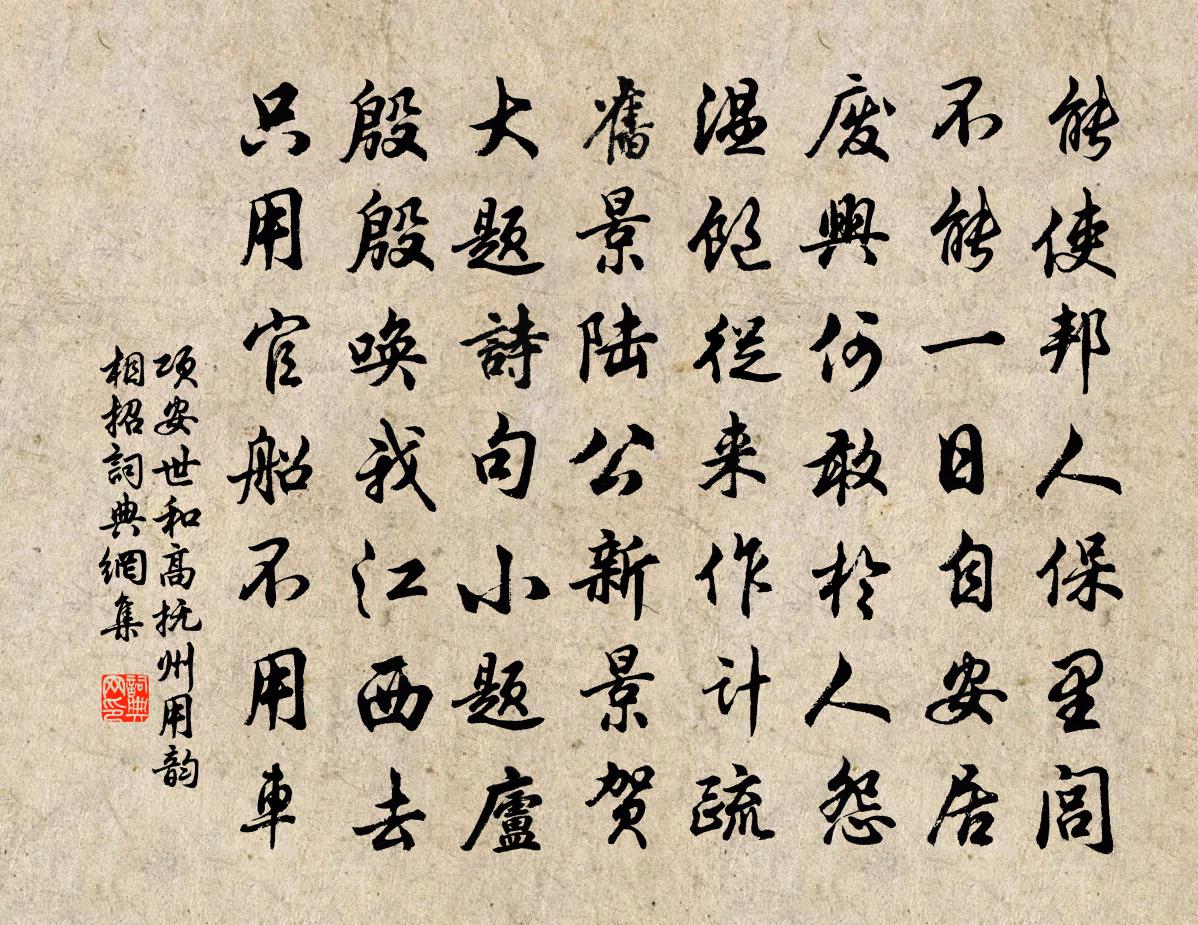 能使邦人保里閭
不能一日自安居
废興何敢於人怨
温飽從来作計疏
舊景陆公新景贺
大题詩句小题廬
殷殷唤我江西去
只用官船不用車
项安世和高抚州用韵
相招詞典網集
詞典网印